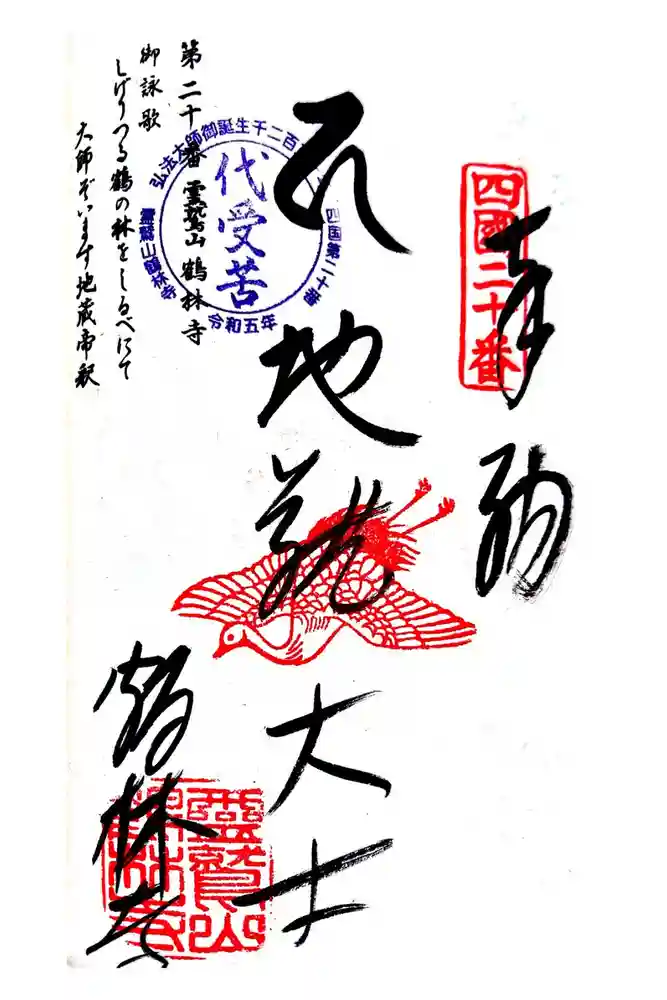 奉納
四國二十番
地蔵大士
鶴林寺
靈鷲山鶴林寺
弘法大師御誕生千二百
四国第二十番
代受苦
靈鷲山鶴林寺
令和五年
第二十番 靈鷲山 鶴林寺
御詠歌
しげりつる鶴の林をしるべにて
大師ぞいます地蔵帝釈